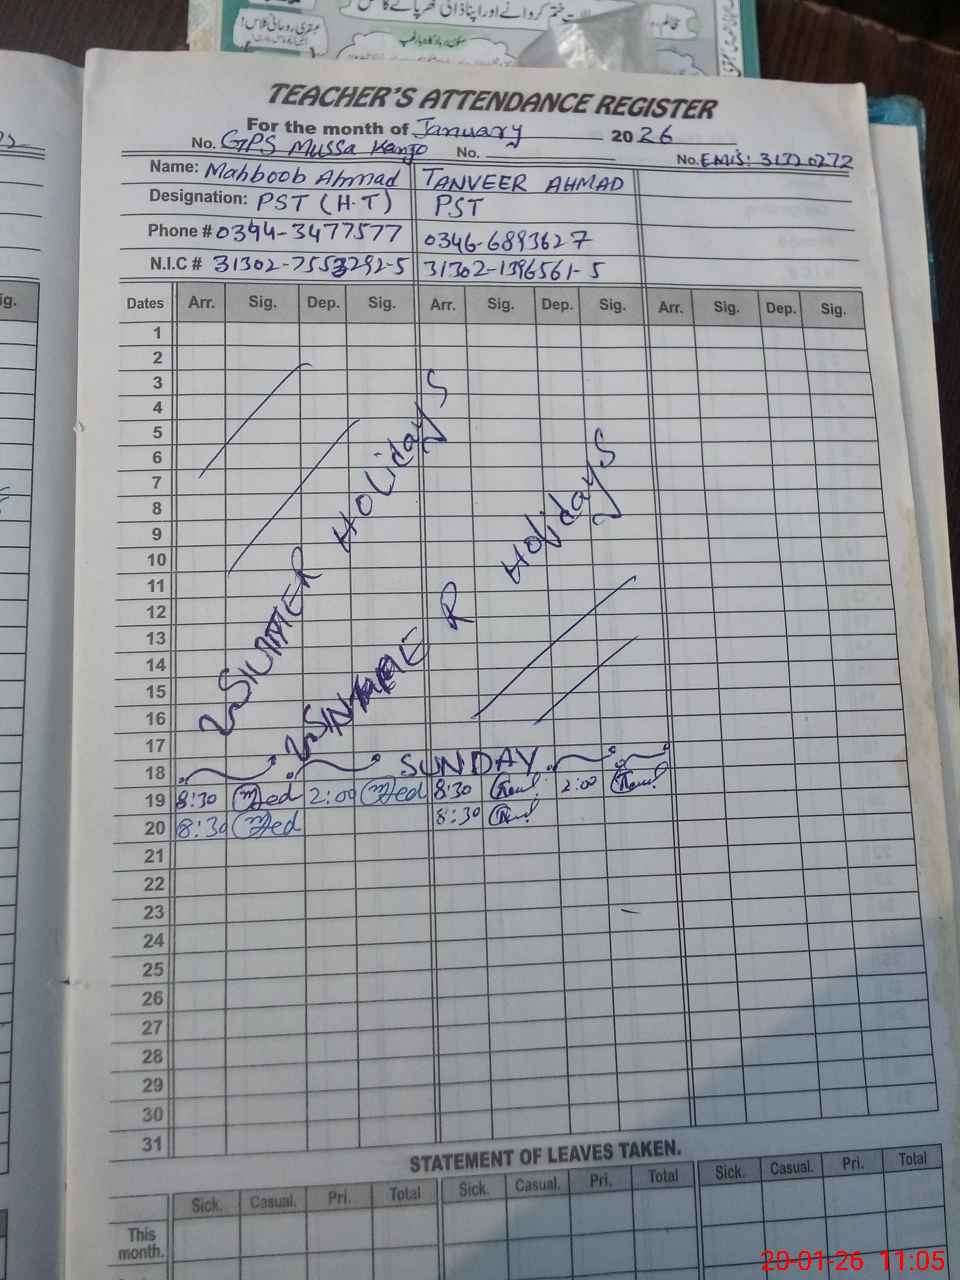 TEACHER'S ATTENDANCE REGISTER
For the month of January 2026
No. GPS Mussa Kanjo No. No. EMIS: 31320272
Name: Mahboob Ahmad TANVEER AHMAD
Designation: PST (H.T) PST
Phone # 0344-3477577 0346-6893627
N.I.C # 31302-7553292-5 31302-1396561-5
Dates Arr. Sig. Dep. Sig. Arr. Sig. Dep. Sig. Arr. Sig. Dep. Sig.
1
2
3
4
5
6
7
8
9
10
11
12
13
14
15
16
17
HOLIDAYS
HOLIDAYS
18 SUNDAY
19 8:30 2:00 8:30 2:00
20 8:30 8:30
21
22
23
24
25
26
27
28
29
30
31
STATEMENT OF LEAVES TAKEN.
Sick. Casual. Pri. Total Sick. Casual. Pri. Total Sick. Casual. Pri. Total
This
month.
20-01-26 11:05